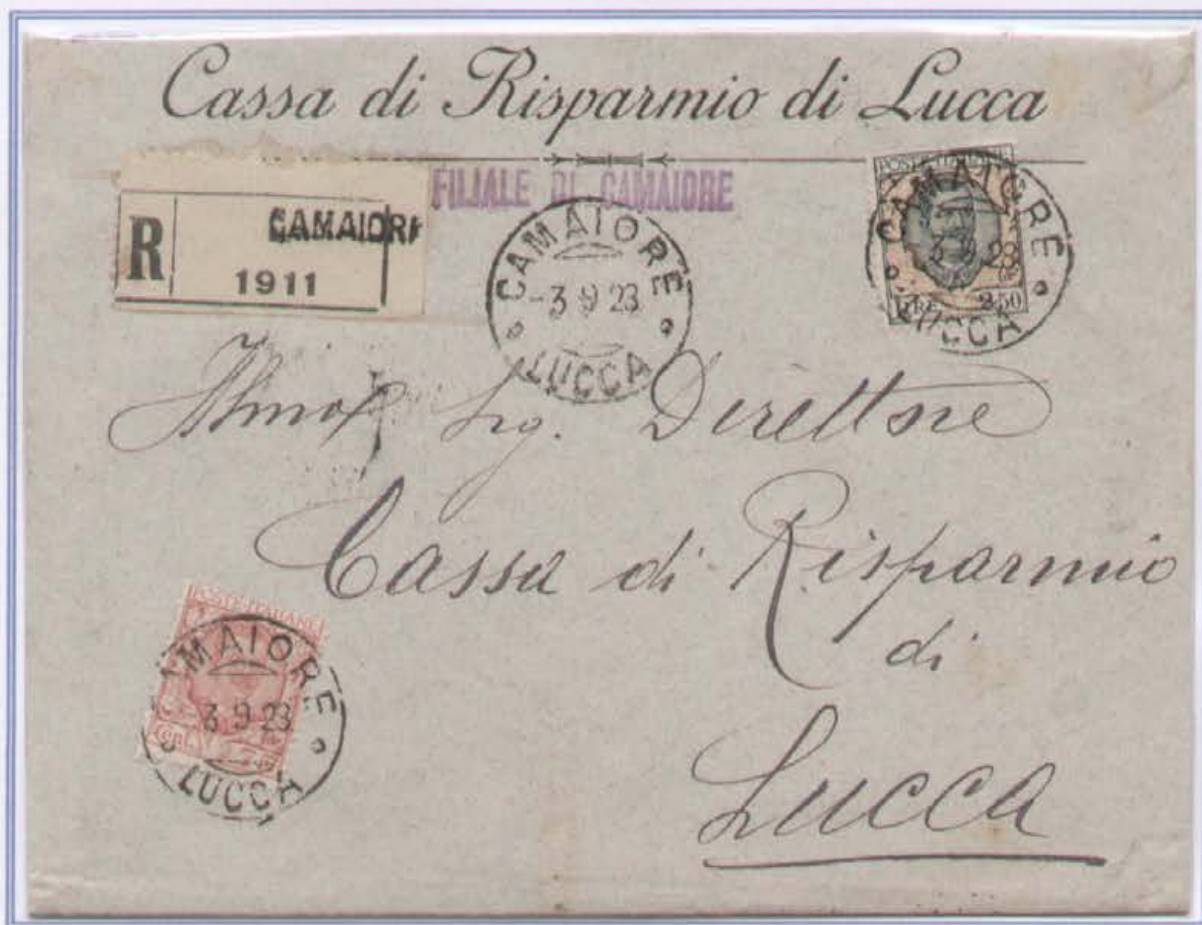 Cassa di Risparmio di Lucca
FILIALE DI CAMAIORE
R CAMAIORE
1911
CAMAIORE
-3 9 23
LUCCA
POSTE ITALIANE
LIRE 2,50
CAMAIORE
3 9 23
LUCCA
Sig. Direttore
Cassa di Risparmio
di
Lucca
POSTE ITALIANE
Cent.
CAMAIORE
3 9 23
LUCCA